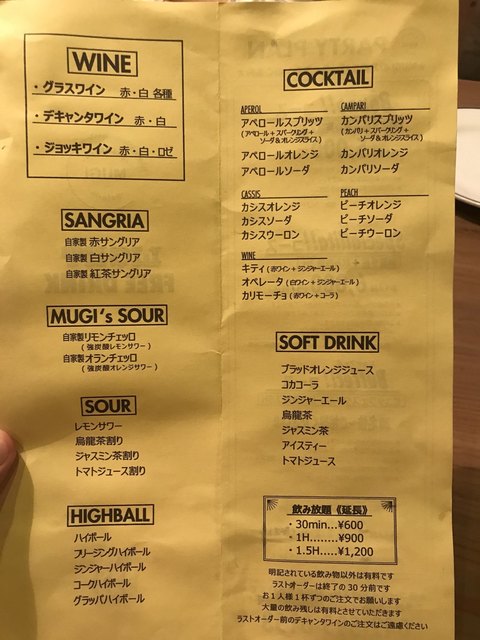 WINE
・グラスワイン 赤・白 各種
・デキャンタワイン 赤・白
・ジョッキワイン 赤・白・ロゼ
SANGRIA
自家製 赤サングリア
自家製 白サングリア
自家製 紅茶サングリア
MUGI's SOUR
自家製リモンチェッロ
(強炭酸レモンサワー)
自家製オランチェッロ
(強炭酸オレンジサワー)
SOUR
レモンサワー
烏龍茶割り
ジャスミン茶割り
トマトジュース割り
HIGHBALL
ハイボール
フリージングハイボール
ジンジャーハイボール
コークハイボール
グラッパハイボール
COCKTAIL
APEROL
アペロールスプリッツ
(アペロール+スパークリング+
ソーダ&オレンジスライス)
アペロールオレンジ
アペロールソーダ
CAMPARI
カンパリスプリッツ
(カンパリ+スパークリング+
ソーダ&オレンジスライス)
カンパリオレンジ
カンパリソーダ
CASSIS
カシスオレンジ
カシスソーダ
カシスウーロン
PEACH
ピーチオレンジ
ピーチソーダ
ピーチウーロン
WINE
キティ(赤ワイン+ジンジャーエール)
オペレータ(白ワイン+ジンジャーエール)
カリモーチョ(赤ワイン+コーラ)
SOFT DRINK
ブラッドオレンジジュース
コカコーラ
ジンジャーエール
烏龍茶
ジャスミン茶
アイスティー
トマトジュース
飲み放題《延長》
・30min...¥600
・1H........¥900
・1.5H.....¥1,200
明記されている飲み物以外は有料です
ラストオーダーは終了の30分前です
お1人様1杯ずつのご注文でお願いします
大量の飲み残しは有料とさせていただきます
ラストオーダー前のデキャンタワインのご注文はご遠慮ください